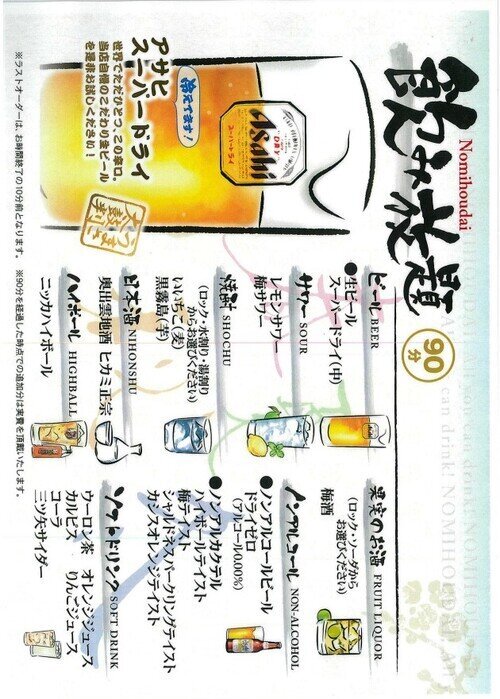 飲み放題
Nomihoudai
90分
Asahi
DRY
スーパードライ
冷えてます!
アサヒ
スーパードライ
世界でただひとつ、この辛口。
当店自慢のこだわり生ビール
を是非お試しください!
うまさ
太鼓判
ビール BEER
●生ビール
スーパードライ(中)
サワー SOUR
レモンサワー
梅サワー
焼酎 SHOCHU
(ロック・水割り・湯割り
からお選びください)
いいちこ(麦)
黒霧島(芋)
日本酒 NIHONSHU
奥出雲地酒 ヒカミ正宗
ハイボール HIGHBALL
ニッカハイボール
果実のお酒 FRUIT LIQUOR
(ロック・ソーダから
お選びください)
梅酒
ノンアルコール NON-ALCOHOL
●ノンアルコールビール
ドライゼロ
(アルコール0.00%)
●ノンアルカクテル
ハイボールテイスト
梅テイスト
シャルドネスパークリングテイスト
カシスオレンジテイスト
ソフトドリンク SOFT DRINK
ウーロン茶 オレンジジュース
カルピス りんごジュース
コーラ
三ツ矢サイダー
※ラストオーダーは、お時間終了の10分前となります。 ※90分を経過した時点での追加分は実費を頂戴いたします。